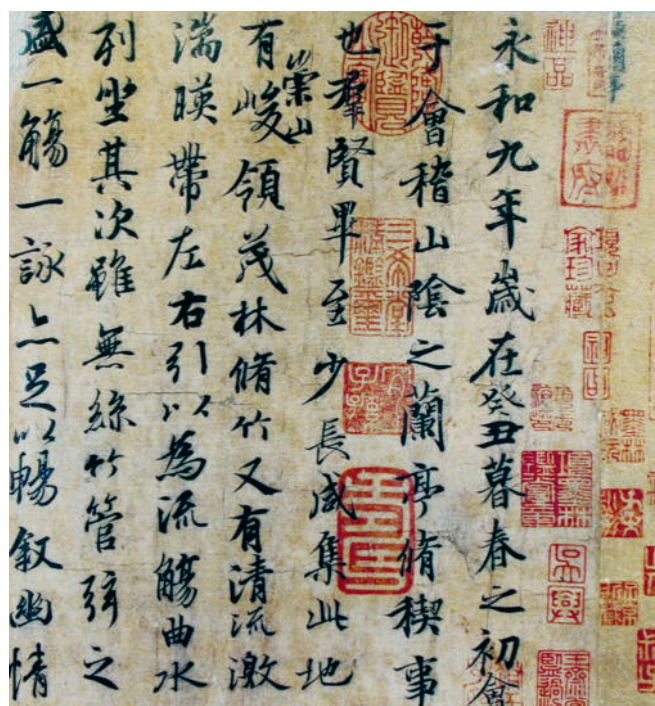 永和九年歲在癸丑暮春之初會
于會稽山陰之蘭亭脩稧事
也羣賢畢至少長咸集此地
有崇山峻領茂林脩竹又有清流激
湍暎帶左右引以為流觴曲水
列坐其次雖無絲竹管弦之
盛一觴一詠亦足以暢敘幽情
神品
三希堂精鑑璽
宜子孫